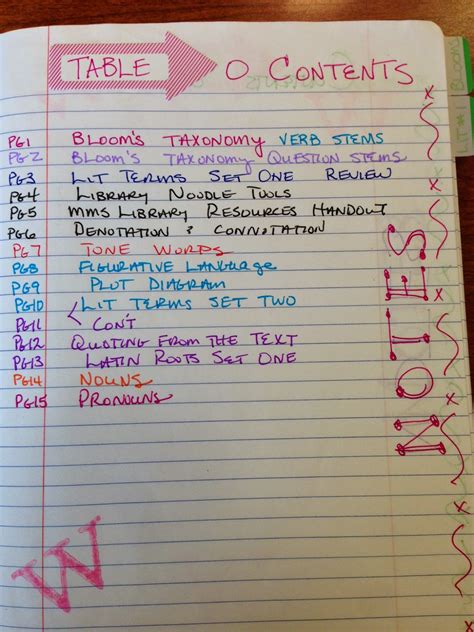 TABLE O CONTENTS
PG1 BLOOM'S TAXONOMY VERB STEMS
PG2 BLOOM'S TAXONOMY QUESTION STEMS
PG3 LIT TERMS SET ONE REVIEW
PG4 LIBRARY NOODLE TOOLS
PG5 MMS LIBRARY RESOURCES HANDOUT
PG6 DENOTATION & CONNOTATION
PG7 TONE WORDS
PG8 FIGURATIVE LANGUAGE
PG9 PLOT DIAGRAM
PG10 LIT TERMS SET TWO
PG11 CON'T
PG12 QUOTING FROM THE TEXT
PG13 LATIN ROOTS SET ONE
PG14 NOUNS
PG15 PRONOUNS
W
BLOOM